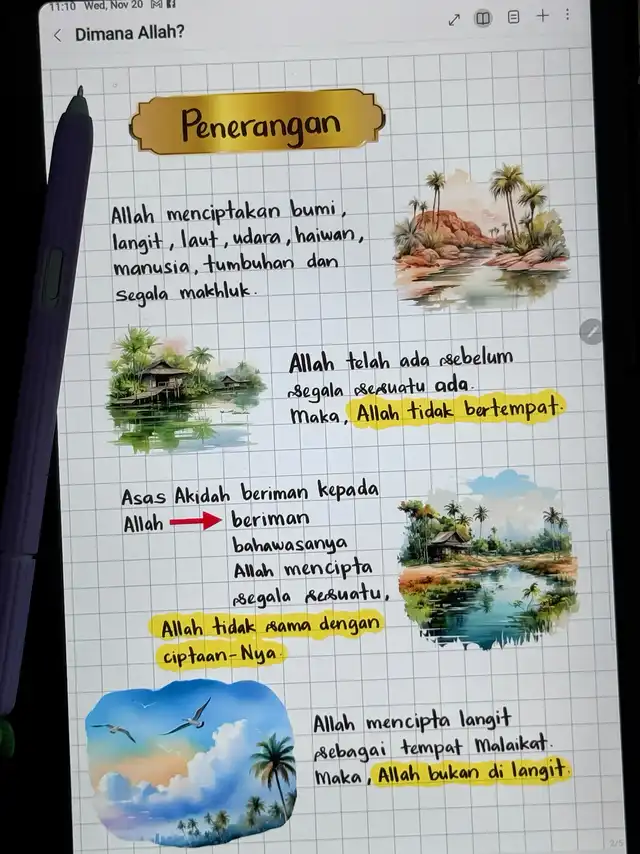 11:10 Wed, Nov 20
Dimana Allah?
Penerangan
Allah menciptakan bumi,
langit, laut, udara, haiwan,
manusia, tumbuhan dan
segala makhluk.
Allah telah ada sebelum
segala sesuatu ada.
Maka, Allah tidak bertempat.
Asas Akidah beriman kepada
Allah → beriman
bahawasanya
Allah mencipta
segala sesuatu,
Allah tidak sama dengan
ciptaan-Nya.
Allah mencipta langit
sebagai tempat Malaikat.
Maka, Allah bukan di langit.
2/5